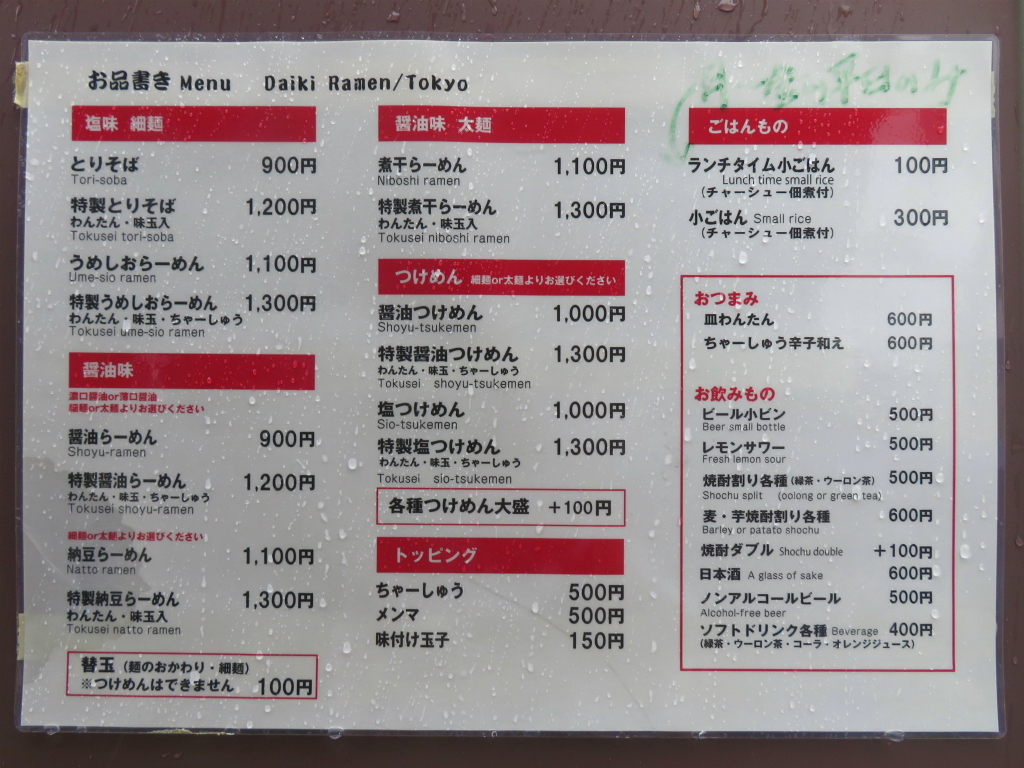 お品書き Menu Daiki Ramen/Tokyo
塩味 細麺
とりそば 900円
Tori-soba
特製とりそば 1,200円
わんたん・味玉入
Tokusei tori-soba
うめしおらーめん 1,100円
Ume-sio ramen
特製うめしおらーめん 1,300円
わんたん・味玉・ちゃーしゅう
Tokusei ume-sio ramen
醤油味
濃口醤油or薄口醤油
細麺or太麺よりお選びください
醤油らーめん 900円
Shoyu-ramen
特製醤油らーめん 1,200円
わんたん・味玉・ちゃーしゅう
Tokusei shoyu-ramen
細麺or太麺よりお選びください
納豆らーめん 1,100円
Natto ramen
特製納豆らーめん 1,300円
わんたん・味玉入
Tokusei natto ramen
替玉（麺のおかわり・細麺）
※つけめんはできません 100円
醤油味 太麺
煮干らーめん 1,100円
Niboshi ramen
特製煮干らーめん 1,300円
わんたん・味玉入
Tokusei niboshi ramen
つけめん 細麺or太麺よりお選びください
醤油つけめん 1,000円
Shoyu-tsukemen
特製醤油つけめん 1,300円
わんたん・味玉・ちゃーしゅう
Tokusei shoyu-tsukemen
塩つけめん 1,000円
Sio-tsukemen
特製塩つけめん 1,300円
わんたん・味玉・ちゃーしゅう
Tokusei sio-tsukemen
各種つけめん大盛 +100円
トッピング
ちゃーしゅう 500円
メンマ 500円
味付け玉子 150円
平日のみ
ごはんもの
ランチタイム小ごはん 100円
Lunch time small rice
（チャーシュー佃煮付）
小ごはん Small rice 300円
（チャーシュー佃煮付）
おつまみ
皿わんたん 600円
ちゃーしゅう辛子和え 600円
お飲みもの
ビール小ビン 500円
Beer small bottle
レモンサワー 500円
Fresh lemon sour
焼酎割り各種（緑茶・ウーロン茶） 500円
Shochu split (oolong or green tea)
麦・芋焼酎割り各種 600円
Barley or patato shochu
焼酎ダブル Shochu double +100円
日本酒 A glass of sake 600円
ノンアルコールビール 500円
Alcohol-free beer
ソフトドリンク各種 Beverage 400円
（緑茶・ウーロン茶・コーラ・オレンジジュース）